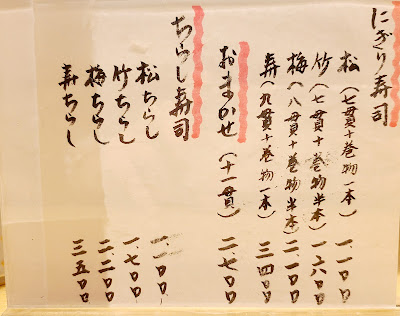 にぎり寿司
松（七貫十巻物一本） 一、一〇〇
竹（七貫十巻物半本） 一、六〇〇
梅（八貫十巻物半本） 二、一〇〇
寿（九貫十巻物一本） 三、四〇〇
おまかせ（十一貫） 二、七〇〇
ちらし寿司
松ちらし 一、一〇〇
竹ちらし 一、七〇〇
梅ちらし 二、二〇〇
寿ちらし 三、五〇〇